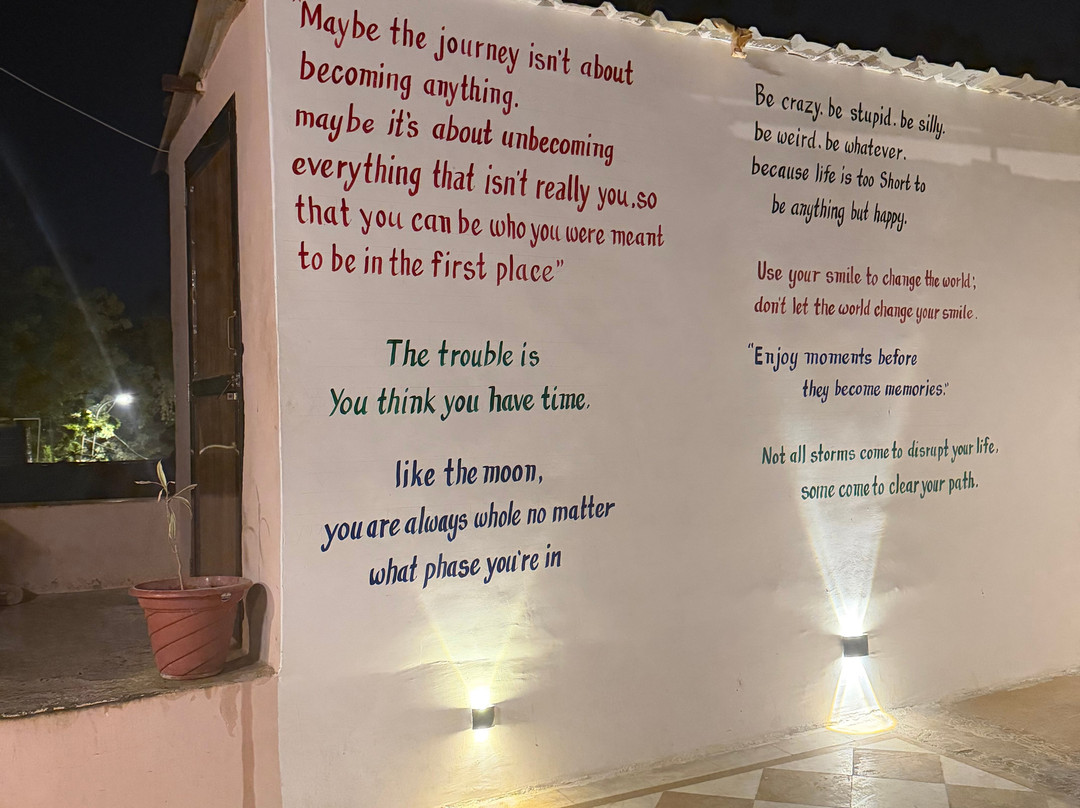 "Maybe the journey isn't about
becoming anything.
maybe it's about unbecoming
everything that isn't really you,so
that you can be who you were meant
to be in the first place"
The trouble is
You think you have time.
like the moon,
you are always whole no matter
what phase you're in
Be crazy. be stupid. be silly.
be weird. be whatever.
because life is too Short to
be anything but happy.
Use your smile to change the world;
don't let the world change your smile.
"Enjoy moments before
they become memories."
Not all storms come to disrupt your life,
some come to clear your path.